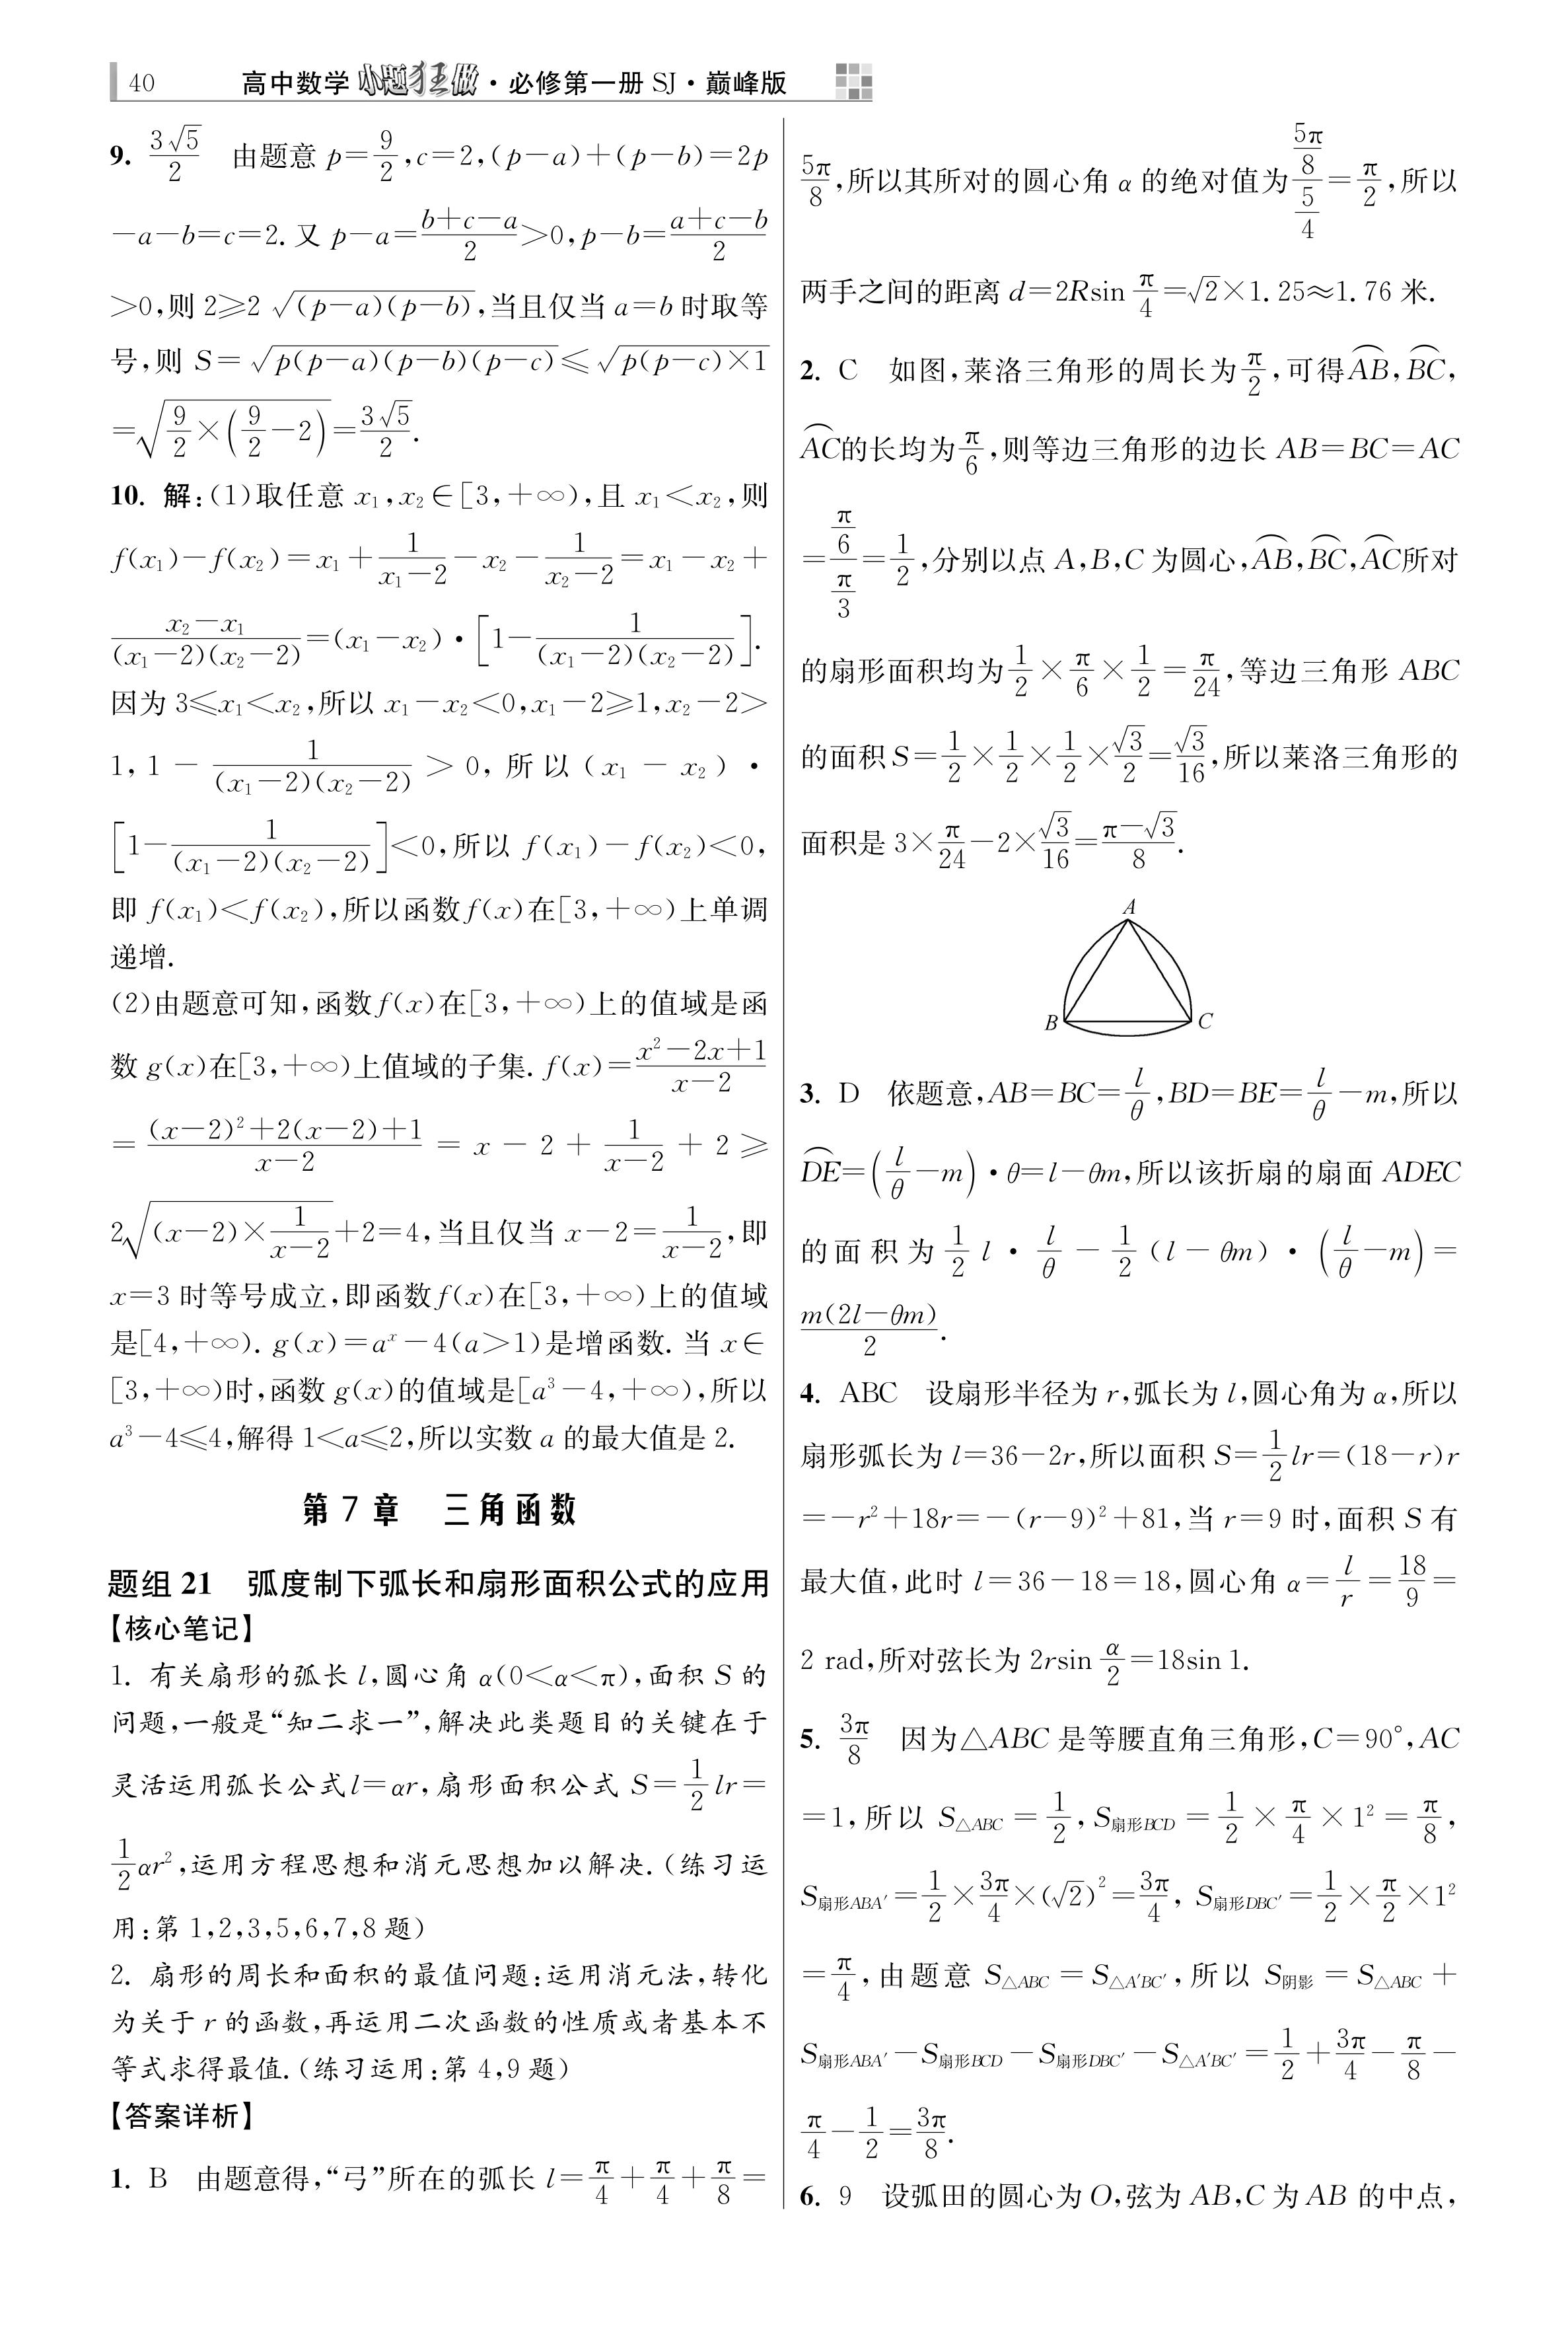 40 高中数学小题狂做·必修第一册 SJ·巅峰版
9. 3√5/2 由题意 p=9/2,c=2,(p-a)+(p-b)=2p
-a-b=c=2. 又 p-a=(b+c-a)/2>0,p-b=(a+c-b)/2
>0,则 2≥2√((p-a)(p-b)),当且仅当 a=b 时取等
号,则 S=√(p(p-a)(p-b)(p-c))≤√(p(p-c)×1)
=√(9/2×(9/2-2))=3√5/2.
10. 解:(1)取任意 x₁,x₂∈[3,+∞),且 x₁<x₂,则
f(x₁)-f(x₂)=x₁+1/(x₁-2)-x₂-1/(x₂-2)=x₁-x₂+
(x₂-x₁)/((x₁-2)(x₂-2))=(x₁-x₂)·[1-1/((x₁-2)(x₂-2))].
因为 3≤x₁<x₂,所以 x₁-x₂<0,x₁-2≥1,x₂-2>
1,1-1/((x₁-2)(x₂-2))>0,所以(x₁-x₂)·
[1-1/((x₁-2)(x₂-2))]<0,所以 f(x₁)-f(x₂)<0,
即 f(x₁)<f(x₂),所以函数f(x)在[3,+∞)上单调
递增.
(2)由题意可知,函数f(x)在[3,+∞)上的值域是函
数 g(x)在[3,+∞)上值域的子集. f(x)=(x²-2x+1)/(x-2)
=((x-2)²+2(x-2)+1)/(x-2)=x-2+1/(x-2)+2≥
2√((x-2)×1/(x-2))+2=4,当且仅当 x-2=1/(x-2),即
x=3 时等号成立,即函数f(x)在[3,+∞)上的值域
是[4,+∞). g(x)=aˣ-4(a>1)是增函数. 当 x∈
[3,+∞)时,函数 g(x)的值域是[a³-4,+∞),所以
a³-4≤4,解得 1<a≤2,所以实数 a 的最大值是 2.
第 7 章 三角函数
题组 21 弧度制下弧长和扇形面积公式的应用
【核心笔记】
1. 有关扇形的弧长 l,圆心角 α(0<α<π),面积 S 的
问题,一般是“知二求一”,解决此类题目的关键在于
灵活运用弧长公式l=αr,扇形面积公式 S=1/2 lr=
1/2 αr²,运用方程思想和消元思想加以解决.(练习运
用:第 1,2,3,5,6,7,8题)
2. 扇形的周长和面积的最值问题:运用消元法,转化
为关于 r 的函数,再运用二次函数的性质或者基本不
等式求得最值.(练习运用:第 4,9 题)
【答案详析】
1. B 由题意得,“弓”所在的弧长 l=π/4+π/4+π/8=
5π/8,所以其所对的圆心角 α 的绝对值为(5π/8)/(5/4)=π/2,所以
两手之间的距离 d=2Rsin π/4=√2×1.25≈1.76 米.
2. C 如图,莱洛三角形的周长为π/2,可得⌒AB,⌒BC,
⌒AC的长均为π/6,则等边三角形的边长 AB=BC=AC
=(π/6)/(π/3)=1/2,分别以点 A,B,C 为圆心,⌒AB,⌒BC,⌒AC所对
的扇形面积均为1/2×π/6×1/2=π/24,等边三角形 ABC
的面积S=1/2×1/2×1/2×√3/2=√3/16,所以莱洛三角形的
面积是 3×π/24-2×√3/16=(π-√3)/8.
A
B C
3. D 依题意,AB=BC=l/θ,BD=BE=l/θ-m,所以
⌒DE=(l/θ-m)·θ=l-θm,所以该折扇的扇面 ADEC
的面积为1/2 l·l/θ-1/2(l-θm)·(l/θ-m)=
m(2l-θm)/2.
4. ABC 设扇形半径为 r,弧长为 l,圆心角为 α,所以
扇形弧长为 l=36-2r,所以面积 S=1/2 lr=(18-r)r
=-r²+18r=-(r-9)²+81,当 r=9 时,面积 S 有
最大值,此时 l=36-18=18,圆心角 α=l/r=18/9=
2 rad,所对弦长为 2rsin α/2=18sin 1.
5. 3π/8 因为△ABC 是等腰直角三角形,C=90°,AC
=1,所以 S△ABC=1/2,S扇形BCD=1/2×π/4×1²=π/8,
S扇形ABA′=1/2×3π/4×(√2)²=3π/4,S扇形DBC′=1/2×π/2×1²
=π/4,由题意 S△ABC=S△A′BC′,所以 S阴影=S△ABC+
S扇形ABA′-S扇形BCD-S扇形DBC′-S△A′BC′=1/2+3π/4-π/8-
π/4-1/2=3π/8.
6. 9 设弧田的圆心为 O,弦为 AB,C 为 AB 的中点,